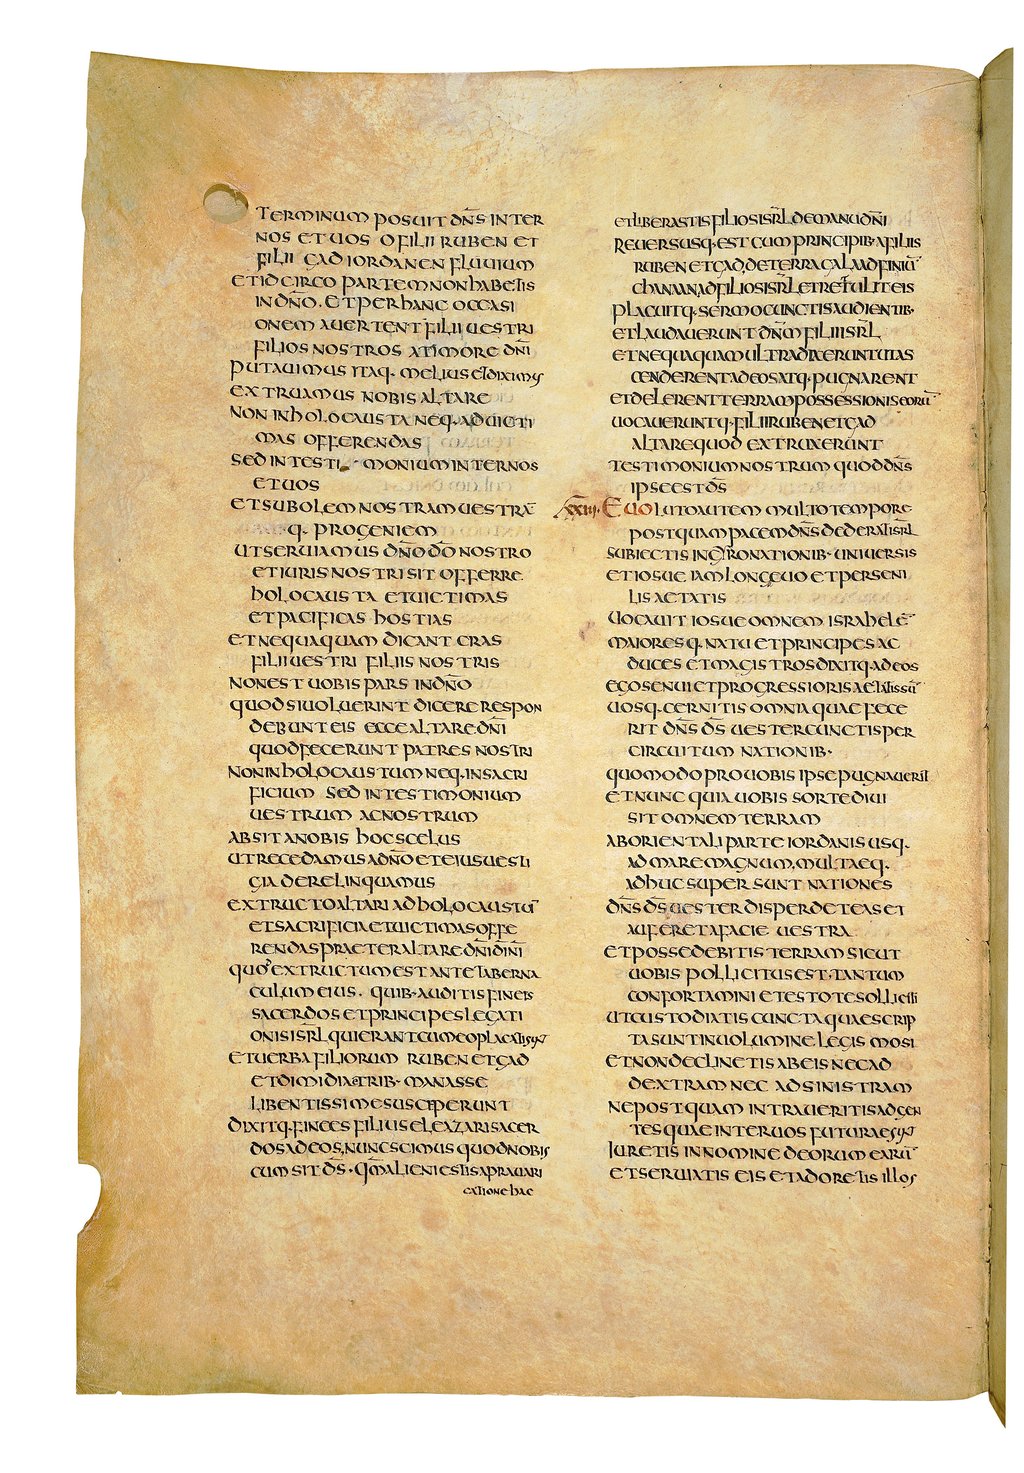 TERMINUM POSUIT DN̄S INTER
NOS ET UOS O FILII RUBEN ET
FILII GAD IORDANEN FLUUIUM
ET IDCIRCO PARTEM NON HABETIS
IN DN̄O. ET PER HANC OCCASI
ONEM AUERTENT FILII UESTRI
FILIOS NOSTROS A TIMORE DN̄I
PUTAUIMUS ITAQ· MELIUS ET DIXIMUS
EXTRUAMUS NOBIS ALTARE
NON IN HOLOCAUSTA NEQ· AD UICTI
MAS OFFERENDAS
SED IN TESTI MONIUM INTER NOS
ET UOS
ET SUBOLEM NOSTRAM UESTRĀ
Q· PROGENIEM
UT SERUIAMUS DN̄O DŌ NOSTRO
ET IURIS NOSTRI SIT OFFERRE
HOLOCAUSTA ET UICTIMAS
ET PACIFICAS HOSTIAS
ET NEQUAQUAM DICANT CRAS
FILII UESTRI FILIIS NOSTRIS
NON EST UOBIS PARS IN DN̄O
QUOD SI UOLUERINT DICERE RESPON
DEBUNT EIS ECCE ALTARE DN̄I
QUOD FECERUNT PATRES NOSTRI
NON IN HOLOCAUSTUM NEQ· IN SACRI
FICIUM SED IN TESTIMONIUM
UESTRUM AC NOSTRUM
ABSIT A NOBIS HOC SCELUS
UT RECEDAMUS A DN̄O ET EIUS UESTI
GIA DERELINQUAMUS
EXTRUCTO ALTARI AD HOLOCAUSTŪ
ET SACRIFICIA ET UICTIMAS OFFE
RENDAS PRAETER ALTARE DN̄I DĪNĪ
QUOD EXTRUCTUM EST ANTE TABERNA
CULUM EIUS. QUIB· AUDITIS FINEES
SACERDOS ET PRINCIPES LEGATI
ONIS ISRL̄ QUI ERANT CUM EO PLACATI SUNT
ET UERBA FILIORUM RUBEN ET GAD
ET DIMIDIAE TRIB· MANASSE
LIBENTISSIME SUSCEPERUNT
DIXITQ· FINEES FILIUS ELEAZARI SACER
DOS AD EOS, NUNC SCIMUS QUOD NOBIS
CUM SIT DS̄· QM̄ ALIENI ESTIS A PRAUARI
CATIONE HAC
ET LIBERASTIS FILIOS ISRL̄ DE MANU DN̄I
REUERSUSQ· EST CUM PRINCIPIB· A FILIIS
RUBEN ET GAD, DE TERRA GALAAD FINIŪ
CHANAAN, AD FILIOS ISRL̄ ET RETTULIT EIS
PLACUITQ· SERMO CUNCTIS AUDIENTIB·
ET LAUDAUERUNT DN̄M FILII ISRL̄
ET NEQUAQUAM ULTRA DIXERUNT UT AS
CENDERENT AD EOS ATQ· PUGNARENT
ET DELERENT TERRAM POSSESSIONIS EORŪ
UOCAUERUNTQ· FILII RUBEN ET GAD
ALTARE QUOD EXTRUXERUNT
TESTIMONIUM NOSTRUM QUOD DN̄S
IPSE EST DS̄
XXIII· EUOLUTO AUTEM MULTO TEMPORE
POSTQUAM PACEM DN̄S DEDERAT ISRL̄
SUBIECTIS IN GYRO NATIONIB· UNIUERSIS
ET IOSUE IAM LONGEUO ET PERSENI
LIS AETATIS
UOCAUIT IOSUE OMNEM ISRAHELĒ
MAIORESQ· NATU ET PRINCIPES AC
DUCES ET MAGISTROS DIXITQ· AD EOS
EGO SENUI ET PROGRESSIORIS AETATIS SŪ
UOSQ· CERNITIS OMNIA QUAE FECE
RIT DN̄S DS̄ UESTER CUNCTIS PER
CIRCUITUM NATIONIB·
QUOMODO PRO UOBIS IPSE PUGNAUERIT
ET NUNC QUIA UOBIS SORTE DIUI
SIT OMNEM TERRAM
AB ORIENTALI PARTE IORDANIS USQ·
AD MARE MAGNUM, MULTAEQ·
ADHUC SUPERSUNT NATIONES
DN̄S DS̄ UESTER DISPERDET EAS ET
AUFERET A FACIE UESTRA
ET POSSEDEBITIS TERRAM SICUT
UOBIS POLLICITUS EST. TANTUM
CONFORTAMINI ET ESTOTE SOLLICITI
UT CUSTODIATIS CUNCTA QUAE SCRIP
TA SUNT IN UOLUMINE LEGIS MOSI
ET NON DECLINETIS AB EIS NEC AD
DEXTRAM NEC AD SINISTRAM
NE POSTQUAM INTRAUERITIS AD GEN
TES QUAE INTER UOS FUTURAE SUNT
IURETIS IN NOMINE DEORUM EARŪ
ET SERUIATIS EIS ET ADORETIS ILLOS